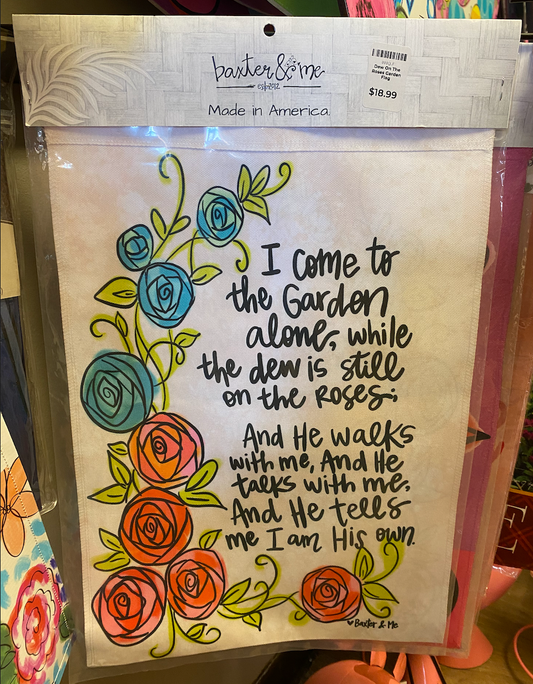 baxter & me
est. 2012
Made in America.
Dew On The
Roses Garden
Flag
$18.99
I come to
the Garden
alone, while
the dew is still
on the Roses;
And He walks
with me, And He
talks with me,
And He tells
me I am His own.
Baxter & Me
E